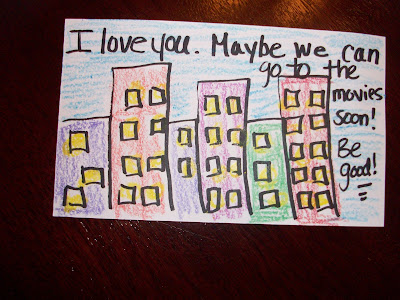 I love you. Maybe we can
go to the
movies
soon!
Be
good!